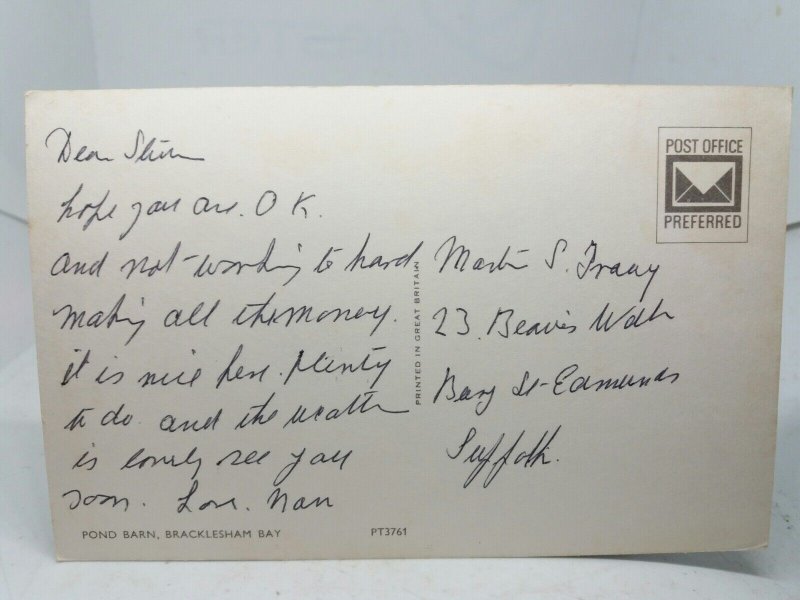 Dear
hope you are. O K.
and not working to hard
making all the money.
it is nice here. plenty
to do and the weather
is lovely see you
soon. Love. Nan
POND BARN, BRACKLESHAM BAY
PT3761
PRINTED IN GREAT BRITAIN
POST OFFICE
PREFERRED
S. Tracy
23. Beavis Walk
Bury St-Edmunds
Suffolk.